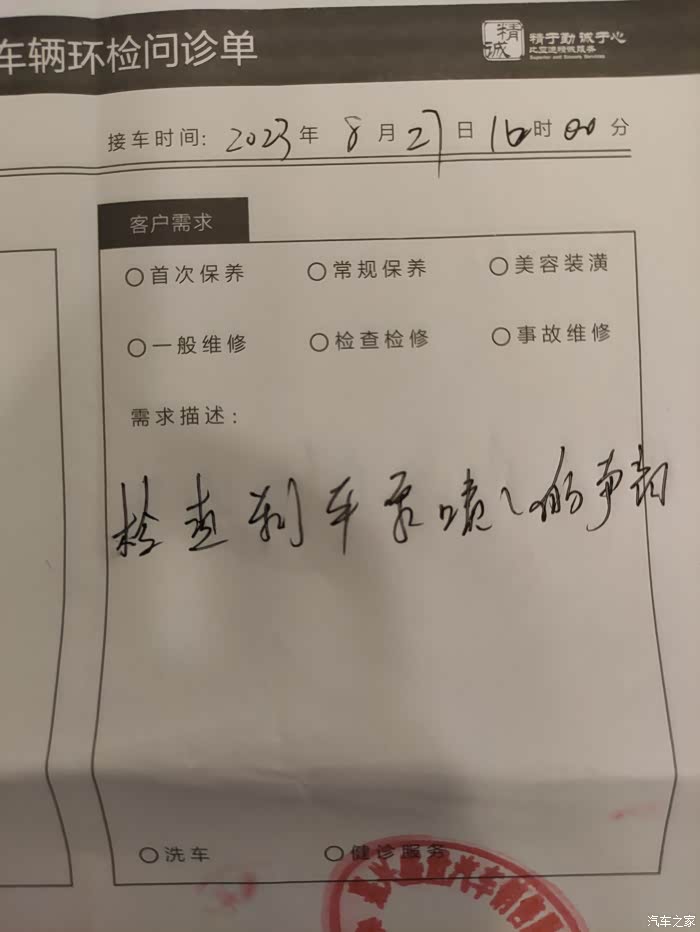 车辆环检问诊单
精于勤 诚于心
比亚迪精诚服务
Superior and Sincere Services
接车时间: 2023年 8月 27日 16时 00分
客户需求
首次保养 常规保养 美容装潢
一般维修 检查检修 事故维修
需求描述:
检查刹车 的声音
洗车 健诊服务
汽车之家